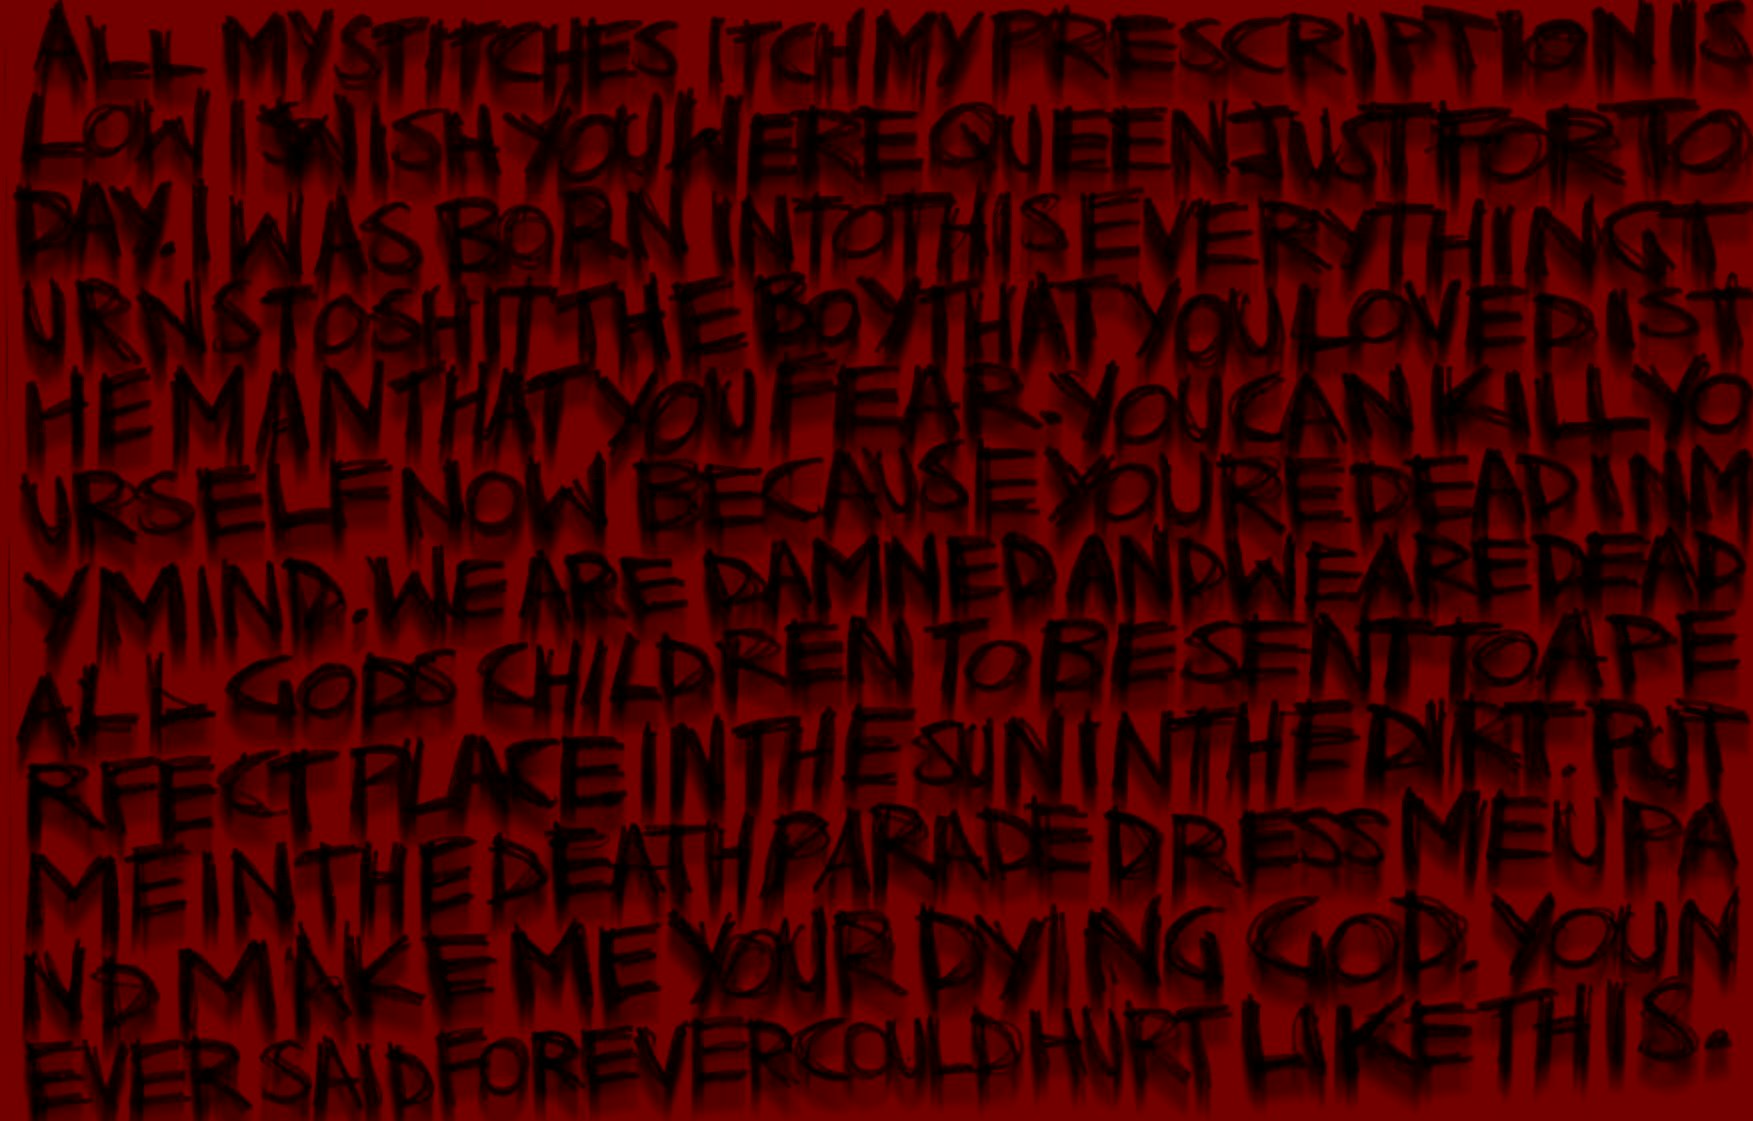 ALL MY STITCHES ITCH MY PRESCRIPTION IS
LOW I WISH YOU WERE QUEEN JUST FOR TO
DAY. I WAS BORN INTO THIS EVERYTHING T
URNS TO SHIT THE BOY THAT YOU LOVED IS T
HE MAN THAT YOU FEAR. YOU CAN KILL YO
URSELF NOW BECAUSE YOURE DEAD IN M
Y MIND. WE ARE DAMNED AND WE ARE DEAD
ALL GODS CHILDREN TO BE SENT TO A PE
RFECT PLACE IN THE SUN IN THE DIRT. PUT
ME IN THE DEATH PARADE DRESS ME UP A
ND MAKE ME YOUR DYING GOD. YOU N
EVER SAID FOREVER COULD HURT LIKE THIS.